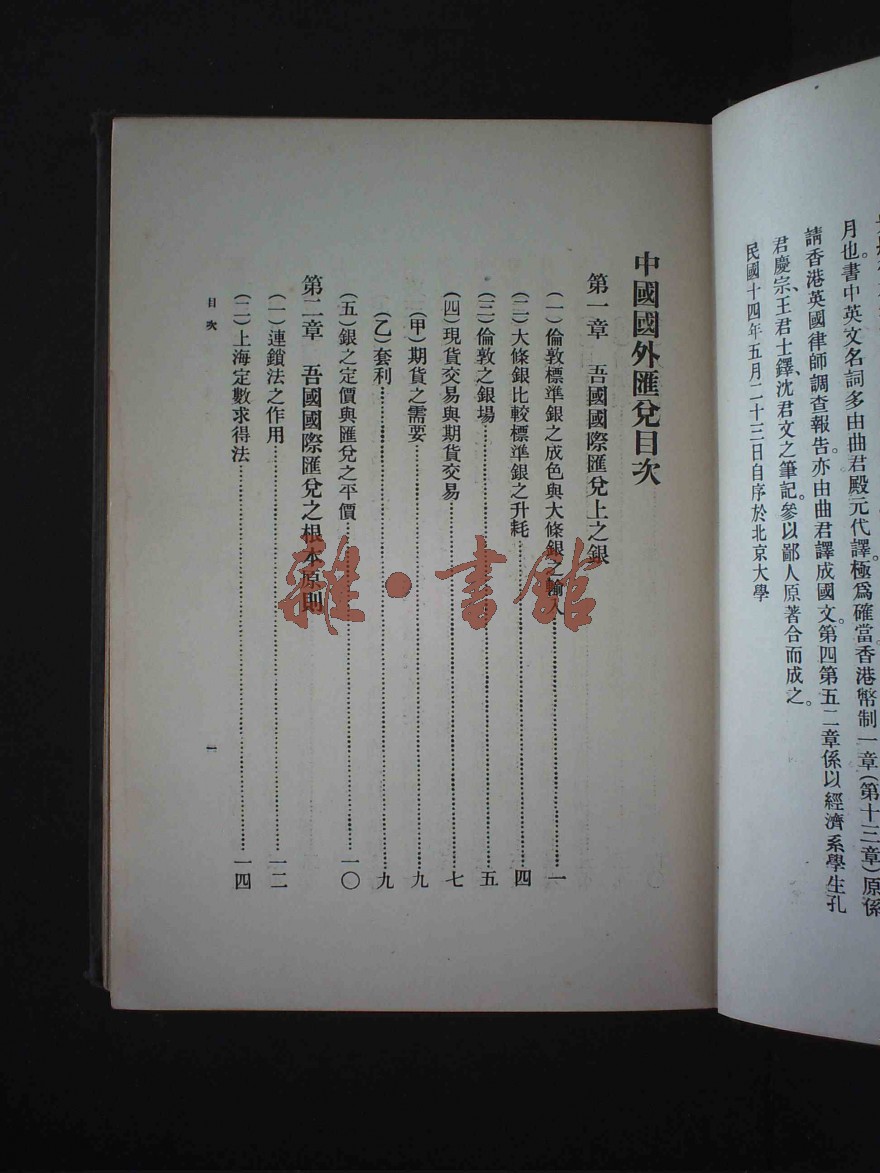 月也。書中英文名詞多由曲君殿元代譯極爲確當。香港幣制一章(第十三章)原係
請香港英國律師調查報告。亦由曲君譯成國文。第四第五二章係以經濟系學生孔
君慶宗、王君士鐸、沈君文之筆記。參以鄙人原著合而成之。
民國十四年五月二十三日自序於北京大學
中國國外匯兌目次
第一章　吾國國際匯兌上之銀
(一)倫敦標準銀之成色與大條銀之輸入…………一
(二)大條銀比較標準銀之升耗…………四
(三)倫敦之銀場…………五
(四)現貨交易與期貨交易…………七
(甲)期貨之需要…………九
(乙)套利…………九
(五)銀之定價與匯兌之平價…………一〇
第二章　吾國國際匯兌之根本原則
(一)連鎖法之作用…………一二
(二)上海定數求得法…………一四
目次
一
雜·書館